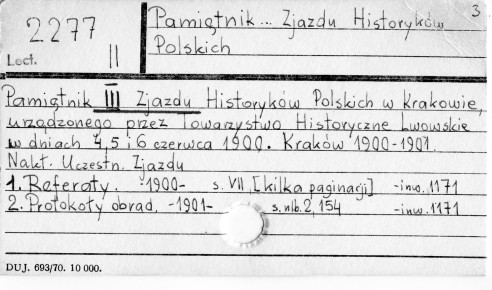 3
2277
Lect. II
Pamiętnik... Zjazdu Historyków
Polskich
Pamiętnik III Zjazdu Historyków Polskich w Krakowie,
urządzonego przez Towarzystwo Historyczne Lwowskie
w dniach 4, 5 i 6 czerwca 1900. Kraków 1900-1901.
Nakł. Uczestn. Zjazdu
1. Referaty. -1900- s. VII, [kilka paginacji] -inw. 1171
2. Protokoły obrad. -1901- s. nlb. 2, 154 -inw. 1171
DUJ. 693/70. 10 000.